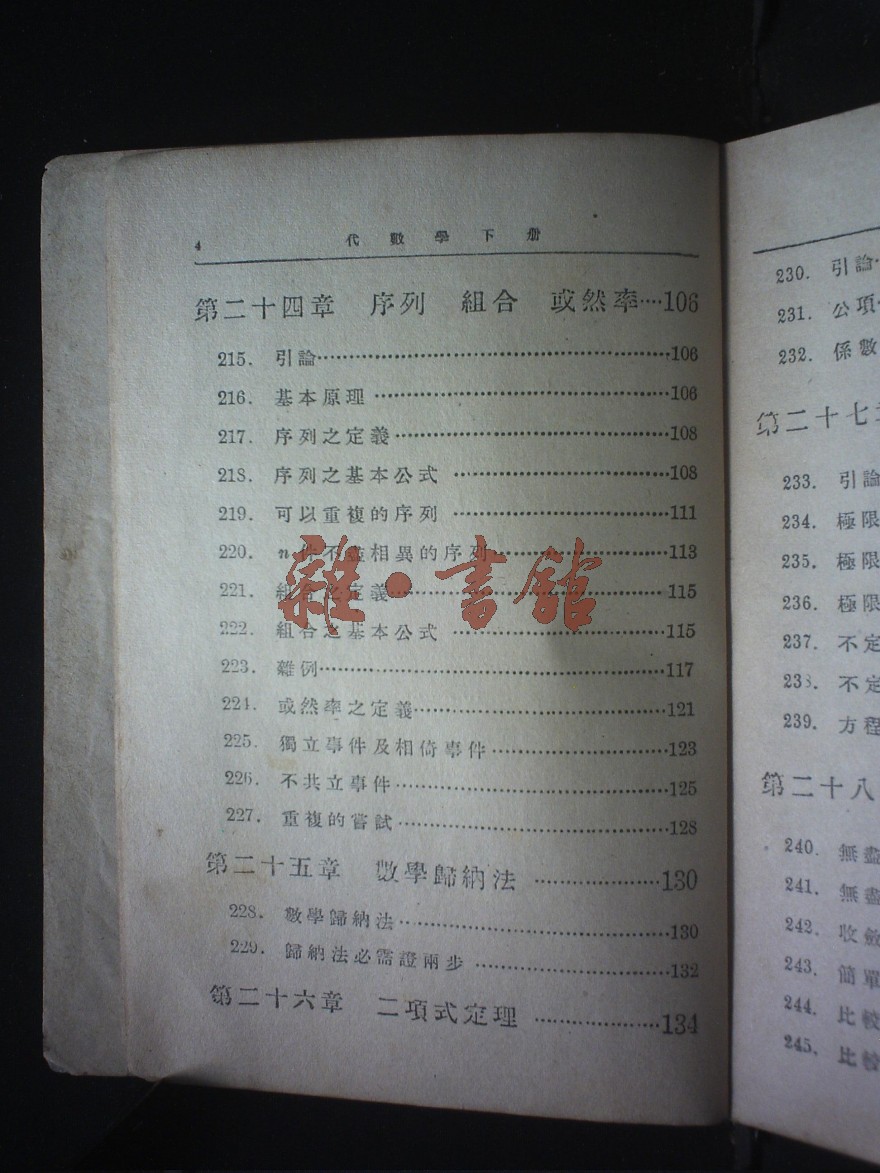 4 代數學下册
第二十四章 序列 組合 或然率····106
215. 引論····106
216. 基本原理····106
217. 序列之定義····108
218. 序列之基本公式····108
219. 可以重複的序列····111
220. n件不盡相異的序列····113
221. 組合之定義····115
222. 組合之基本公式····115
223. 雜例····117
224. 或然率之定義····121
225. 獨立事件及相倚事件····123
226. 不共立事件····125
227. 重複的嘗試····128
第二十五章 數學歸納法····130
228. 數學歸納法····130
229. 歸納法必需證兩步····132
第二十六章 二項式定理····134
雜·書館
230. 引論
231. 公項
232. 係數
第二十七章
233. 引論
234. 極限
235. 極限
236. 極限
237. 不定
238. 不定
239. 方程
第二十八
240. 無盡
241. 無盡
242. 收斂
243. 簡單
244. 比較
245. 比較